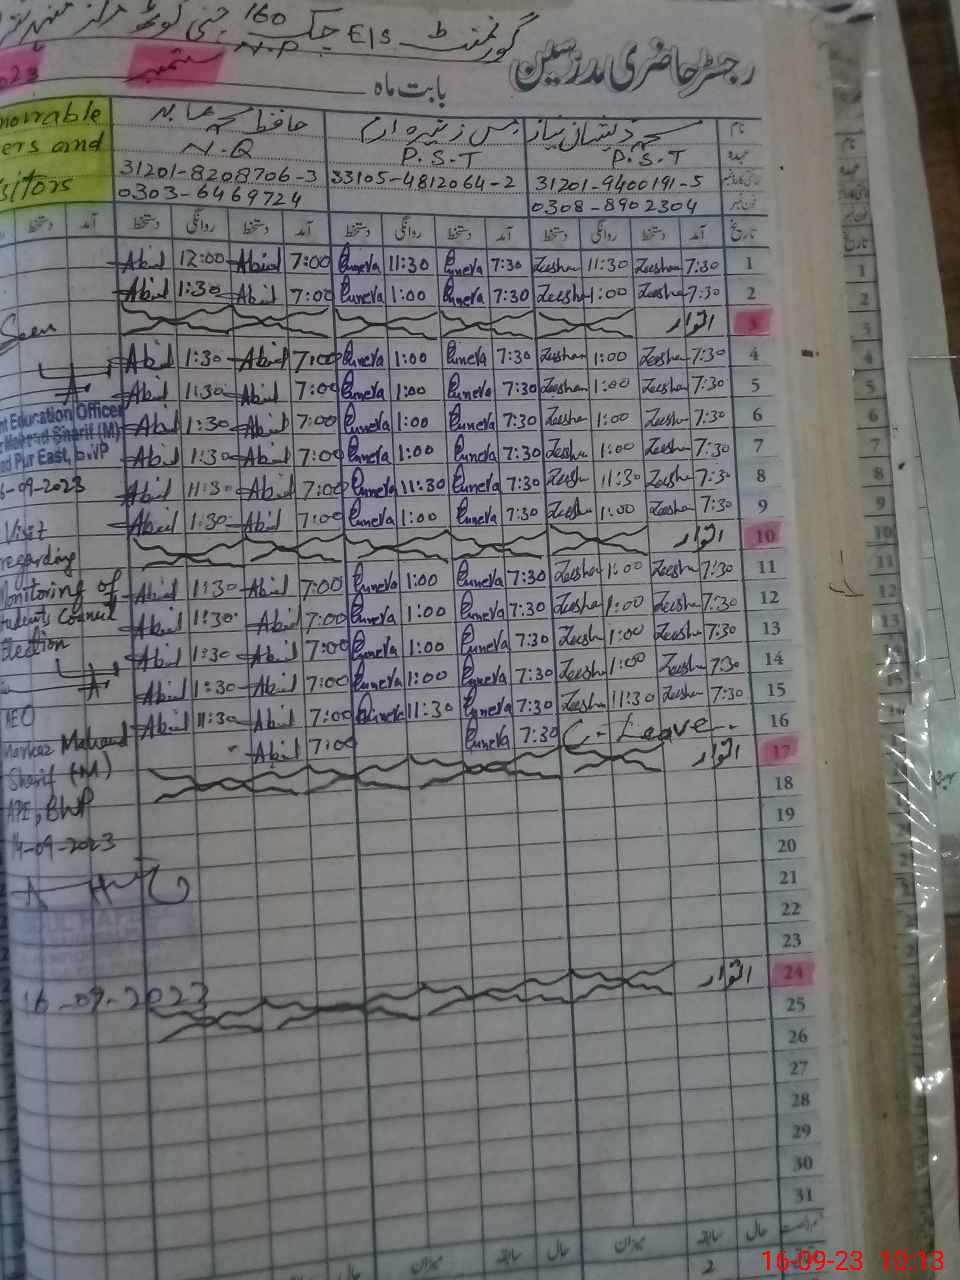 گورنمنٹ E/S چک 160
N.P
رجسٹر حاضری مدرسین
بابت ماہ ستمبر 2023
نام محمد ذیشان نیاز مس زنیرہ ارم حافظ محمد عابد
عہدہ P.S.T P.S.T N.Q
31201-9400191-5 33105-4812064-2 31201-8208706-3
0308-8902304 0303-6469724
ers and
sitors
تاریخ آمد دستخط روانگی دستخط آمد دستخط روانگی دستخط آمد دستخط روانگی دستخط آمد دستخط
1 7:30 Zeeshan 11:30 Zeeshan 7:30 Cuneva 11:30 Cuneva 7:00 Abid 12:00 Abid
2 7:30 Zeeshan 1:00 Zeeshan 7:30 Cuneva 1:00 Cuneva 7:00 Abid 1:30 Abid
3 اتوار
4 7:30 Zeeshan 1:00 Zeeshan 7:30 Cuneva 1:00 Cuneva 7:00 Abid 1:30 Abid
5 7:30 Zeeshan 1:00 Zeeshan 7:30 Cuneva 1:00 Cuneva 7:00 Abid 1:30 Abid
6 7:30 Zeeshan 1:00 Zeeshan 7:30 Cuneva 1:00 Cuneva 7:00 Abid 1:30 Abid
7 7:30 Zeeshan 1:00 Zeeshan 7:30 Cuneva 1:00 Cuneva 7:00 Abid 1:30 Abid
8 7:30 Zeeshan 11:30 Zeeshan 7:30 Cuneva 11:30 Cuneva 7:00 Abid 11:30 Abid
9 7:30 Zeeshan 1:00 Zeeshan 7:30 Cuneva 1:00 Cuneva 7:00 Abid 1:30 Abid
10 اتوار
11 7:30 Zeeshan 1:00 Zeeshan 7:30 Cuneva 1:00 Cuneva 7:00 Abid 1:30 Abid
12 7:30 Zeeshan 1:00 Zeeshan 7:30 Cuneva 1:00 Cuneva 7:00 Abid 1:30 Abid
13 7:30 Zeeshan 1:00 Zeeshan 7:30 Cuneva 1:00 Cuneva 7:00 Abid 1:30 Abid
14 7:30 Zeeshan 1:00 Zeeshan 7:30 Cuneva 1:00 Cuneva 7:00 Abid 1:30 Abid
15 7:30 Zeeshan 11:30 Zeeshan 7:30 Cuneva 11:30 Cuneva 7:00 Abid 11:30 Abid
16 C-Leave 7:30 Cuneva 7:00 Abid
17 اتوار
18
19
20
21
22
23
24 اتوار
25
26
27
28
29
30
31
Seen
nt Education Officer
Sharif (M)
Pur East, B.VP
6-09-2023
Visit
regarding
Monitoring of
Students Council
Election
AEO
Markaz Mahrand
Sharif (M)
APE, BWP
14-09-2023
16-09-2023
حال سابقہ میزان حال سابقہ میزان حال
2
16-09-23 10:13